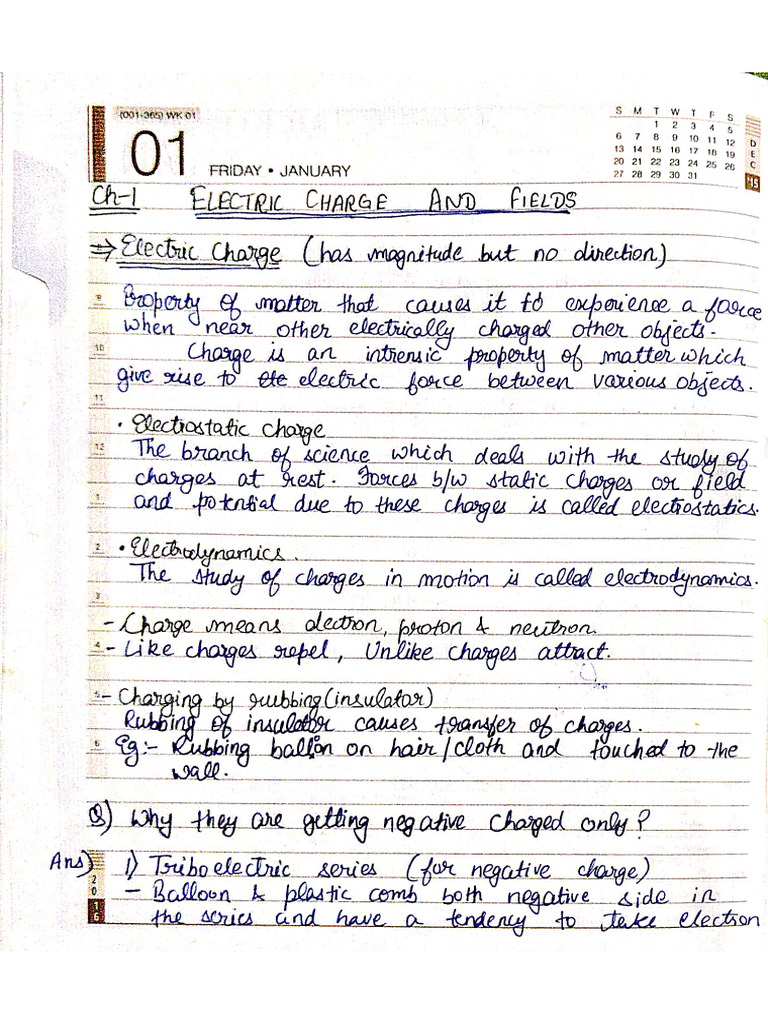 (001-365) WK 01
01 FRIDAY • JANUARY
S M T W T F S
1 2 3 4 5
6 7 8 9 10 11 12
13 14 15 16 17 18 19
20 21 22 23 24 25 26
27 28 29 30 31
DEC
'15
Ch-1 ELECTRIC CHARGE AND FIELDS
⇒ Electric Charge (has magnitude but no direction)
9 Property of matter that causes it to experience a force
when near other electrically charged other objects.
10 Charge is an intrensic property of matter which
give rise to the electric force between various objects.
11
• Electrostatic Charge
12 The branch of science which deals with the study of
charges at rest. Forces b/w static charges or field
1 and potential due to these charges is called electrostatics.
2 • Electrodynamics.
The study of charges in motion is called electrodynamics.
3
- Charge means electron, proton & neutron.
4 - Like charges repel, Unlike charges attract.
5 - Charging by rubbing (insulator)
Rubbing of insulator causes transfer of charges.
6 Eg:- Rubbing balloon on hair/cloth and touched to the
wall.
Q) Why they are getting negative charged only?
Ans) 1) Triboelectric series (for negative charge)
- Balloon & plastic comb both negative side in
the series and have a tendency to take electron
2016